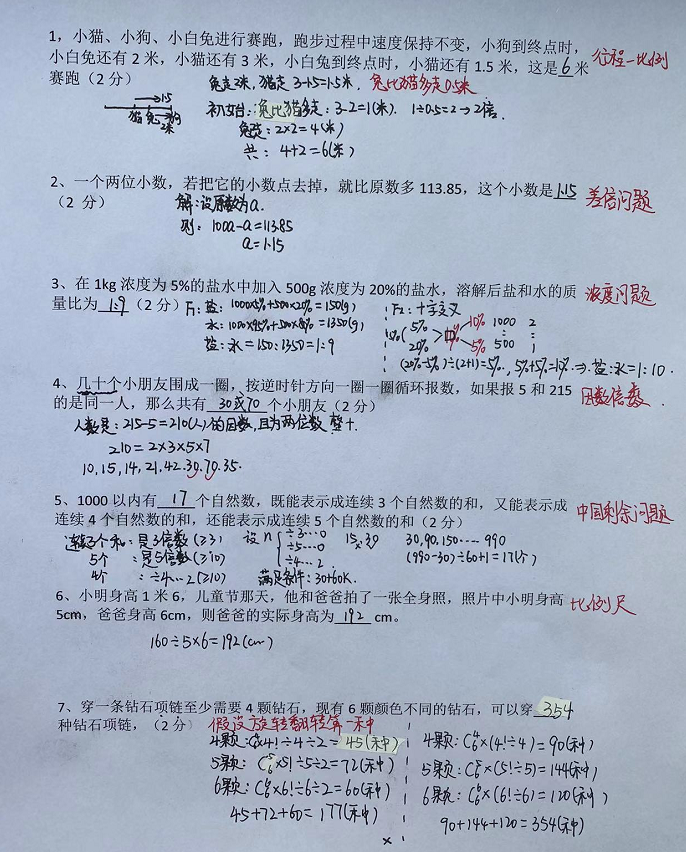 1，小猫、小狗、小白兔进行赛跑，跑步过程中速度保持不变，小狗到终点时，
小白兔还有 2 米，小猫还有 3 米，小白兔到终点时，小猫还有 1.5 米，这是 6 米 行程—比例
赛跑（2 分）
兔走2米，猫走 3-1.5=1.5米. 兔比猫多走0.5米
1.5
猫 兔 狗
2米
初始: 兔比猫多走: 3-2=1(米). 1÷0.5=2→2倍.
兔走: 2×2=4(米)
共: 4+2=6(米)
2、一个两位小数，若把它的小数点去掉，就比原数多 113.85，这个小数是 1.15 差倍问题
（2 分）
解:设原数为a.
则: 100a-a=113.85
a=1.15
3、在 1kg 浓度为 5%的盐水中加入 500g 浓度为 20%的盐水，溶解后盐和水的质 浓度问题
量比为 1:9（2 分）
F1: 盐: 1000×5%+500×20%=150(g)
水: 1000×95%+500×80%=1350(g)
盐:水=150:1350=1:9
F2: 十字交叉
5% 10% 1000 2
20% 5% 500 1
(20%-5%)÷(2+1)=5%, 5%+5%=10% ⇒ 盐:水=1:10.
4、几十个小朋友围成一圈，按逆时针方向一圈一圈循环报数，如果报 5 和 215 因数倍数.
的是同一人，那么共有 30或70 个小朋友（2 分）
人数是: 215-5=210(人)的因数,且为两位数 整十.
210=2×3×5×7
10,15,14,21,42.30.70.35.
5、1000 以内有 17 个自然数，既能表示成连续 3 个自然数的和，又能表示成 中国剩余问题
连续 4 个自然数的和，还能表示成连续 5 个自然数的和（2 分）
连续3个和: 是3倍数(≥3)
5个 : 是5倍数(≥10)
4个 : ÷4…2(≥10)
设 n ÷3…0
÷5…0
÷4…2
15,30
满足条件: 30+60K.
30,90,150……990
(990-30)÷60+1=17(个)
6、小明身高 1 米 6，儿童节那天，他和爸爸拍了一张全身照，照片中小明身高 比例尺
5cm，爸爸身高 6cm，则爸爸的实际身高为 192 cm。
160÷5×6=192(cm)
7、穿一条钻石项链至少需要 4 颗钻石，现有 6 颗颜色不同的钻石，可以穿 354
种钻石项链，（2 分） 假设旋转翻转算一种
4颗: C₆⁴×4!÷4÷2=45(种)
5颗: C₆⁵×5!÷5÷2=72(种)
6颗: C₆⁶×6!÷6÷2=60(种)
45+72+60=177(种)
×
4颗: C₆⁴×(4!÷4)=90(种)
5颗: C₆⁵×(5!÷5)=144(种)
6颗: C₆⁶×(6!÷6)=120(种)
90+144+120=354(种)